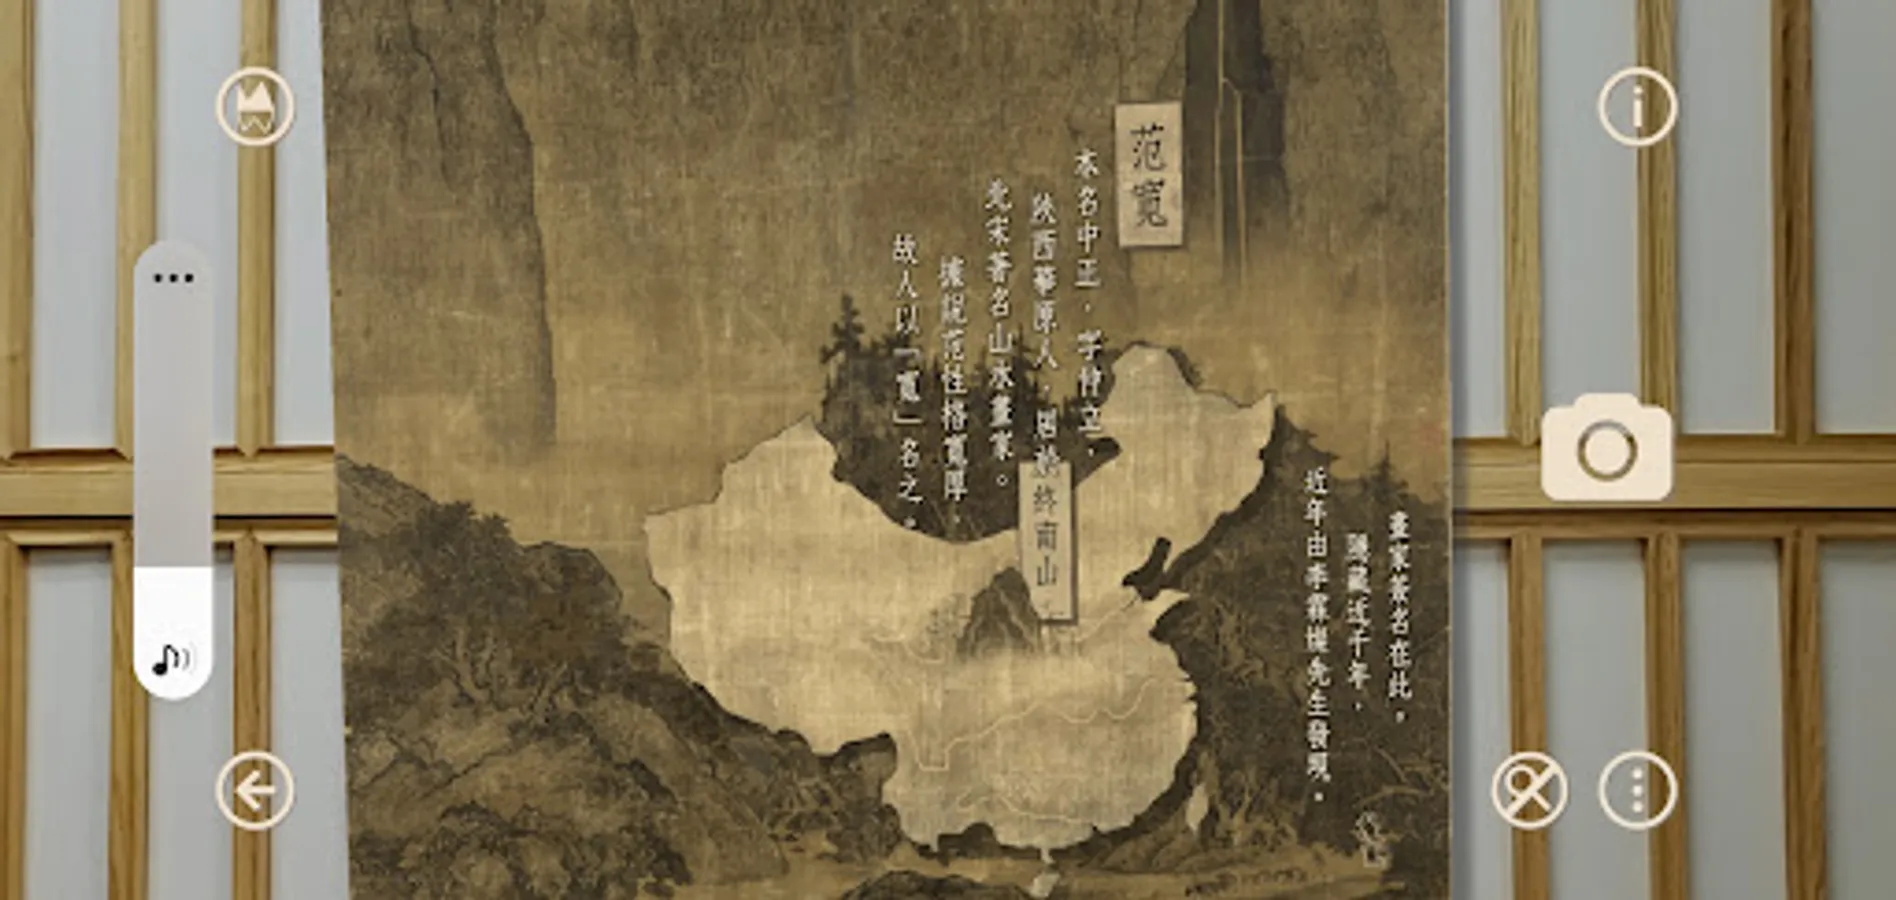 范寬
本名中正，字仲立，
陝西華原人，居於終南山，
北宋著名山水畫家。
據說范性格寬厚，
故人以「寬」名之。
畫家簽名在此，
隱藏近千年，
近年由李霖燦先生發現。